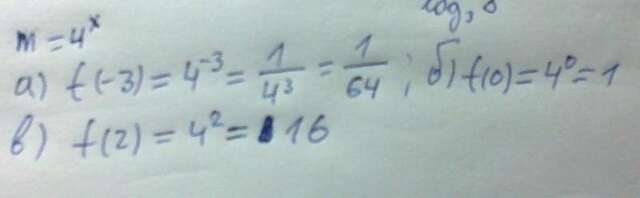 m = 4^x
а) f(-3) = 4^-3 = 1/4^3 = 1/64 ; б) f(0) = 4^0 = 1
в) f(2) = 4^2 = 16